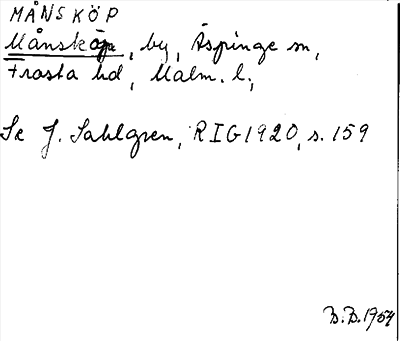 MÅNSKÖP
Månsköp, by, Äspinge sn,
Frosta hd, Malm. l.,
Se J. Sahlgren, RIG 1920, s. 159
B.B. 1954